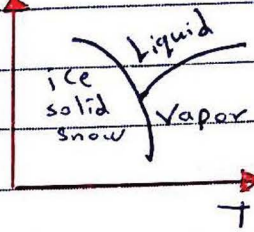 Liquid
ice
solid
snow
Vapor
T